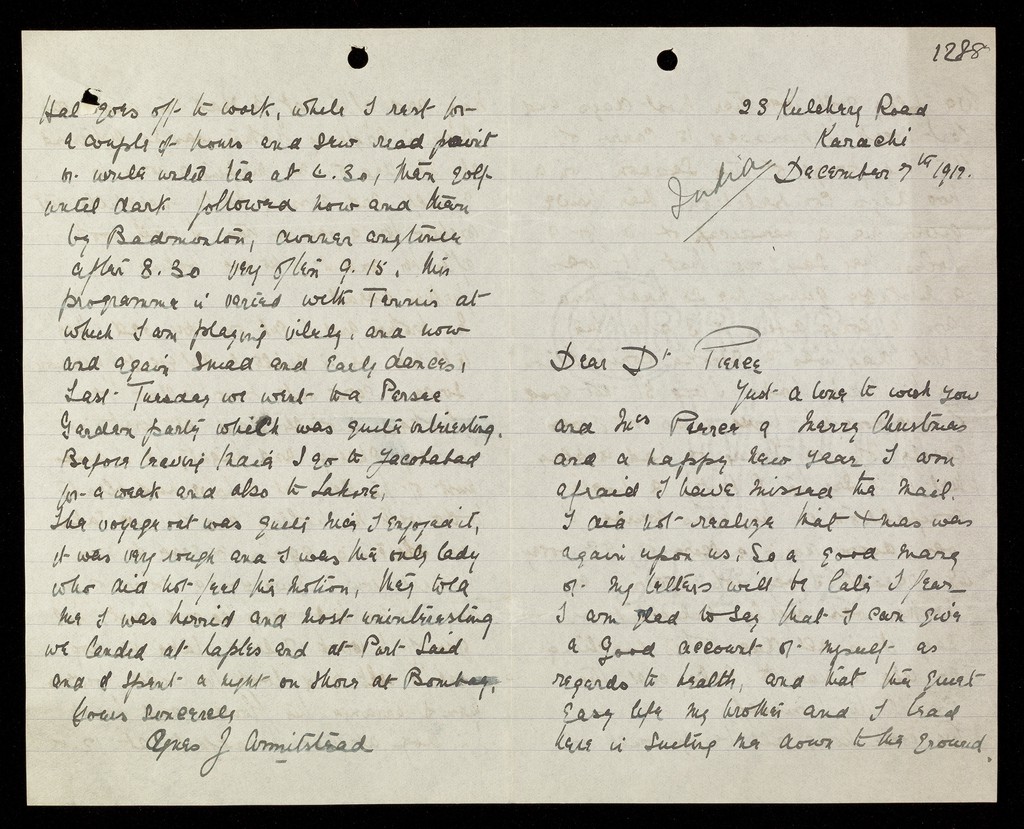 1288
23 Kutchery Road
Karachi
India
December 7th 1912.
Dear Dr Pierce
Just a line to wish you
and Mrs Pierce a Merry Christmas
and a happy New Year I am
afraid I have missed the mail.
I did not realize that Xmas was
again upon us. So a good many
of my letters will be late I fear
I am glad to say that I can give
a good account of myself as
regards to health, and that the quiet
easy life my brother and I lead
here is suiting me down to the ground.
Hal goes off to work, while I rest for
a couple of hours and sew read paint
or write until tea at 4.30, then golf
until dark followed now and then
by Badminton, dinner anytime
after 8.30 very often 9.15. This
programme is varied with Tennis at
which I am playing vilely, and now
and again Snead and Early dances,
Last Tuesday we went to a Persee
Garden party which was quite interesting.
Before leaving India I go to Jacobabad
for a week and also to Lahore,
The voyage out was quite nice I enjoyed it,
it was very rough and I was the only lady
who did not feel the motion, they told
me I was horrid and most uninteresting
we landed at Naples and at Port Said
and I spent a night on shore at Bombay,
Yours sincerely
Agnes J Armitstead